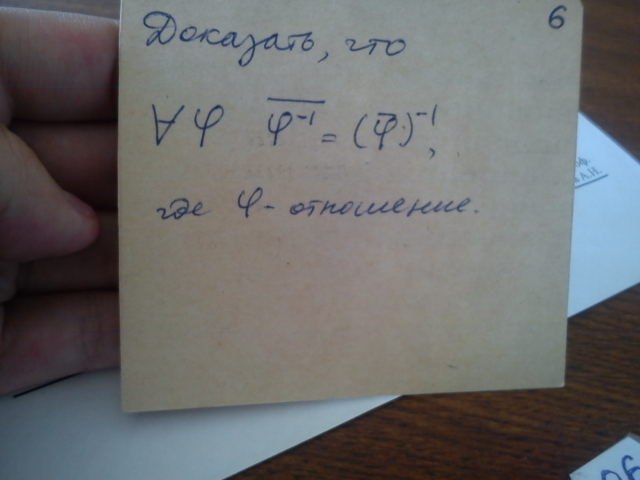 6
Доказать, что
∀φ $\overline{φ^{-1}} = (\overline{φ})^{-1}$,
где φ - отношение.